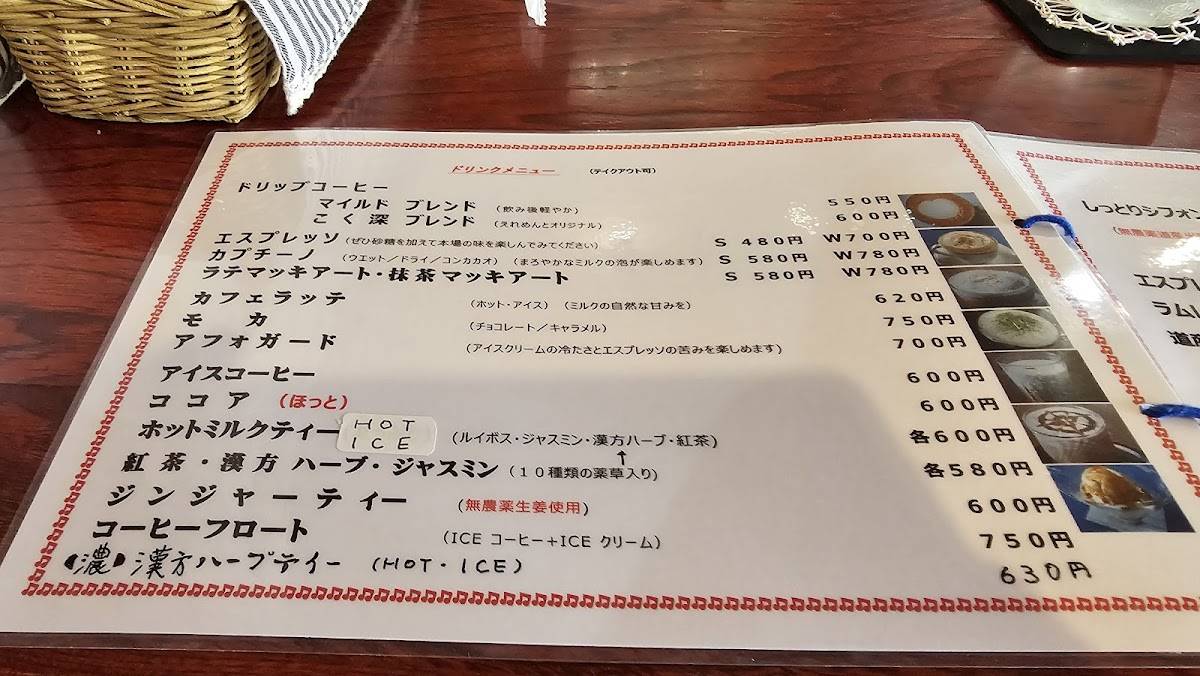 ドリンクメニュー (テイクアウト可)
ドリップコーヒー
マイルド ブレンド (飲み後軽やか) 550円
こく深 ブレンド (えれめんとオリジナル) 600円
エスプレッソ(ぜひ砂糖を加えて本場の味を楽しんでみてください) S 480円 W700円
カプチーノ (ウエット/ドライ/コンカカオ) (まろやかなミルクの泡が楽しめます) S 580円 W780円
ラテマッキアート・抹茶マッキアート S 580円 W780円
カフェラッテ (ホット・アイス) (ミルクの自然な甘みを) 620円
モカ (チョコレート/キャラメル) 750円
アフォガード (アイスクリームの冷たさとエスプレッソの苦みを楽しめます) 700円
アイスコーヒー 600円
ココア (ほっと) 600円
ホットミルクティー HOT ICE (ルイボス・ジャスミン・漢方ハーブ・紅茶) 各600円
紅茶・漢方 ハーブ・ジャスミン (10種類の薬草入り) ↑ 各580円
ジンジャーティー (無農薬生姜使用) 600円
コーヒーフロート (ICE コーヒー+ICE クリーム) 750円
【濃】漢方ハーブテイー (HOT・ICE) 630円
しっとりシフォン
(無農薬
エスプ
ラム
道産